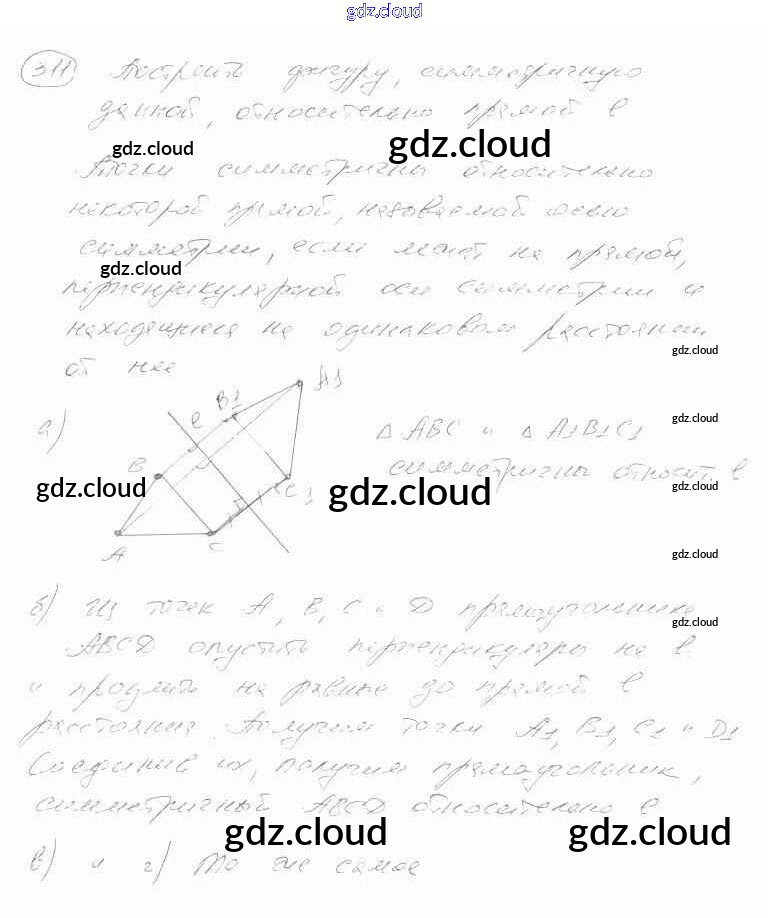 gdz.cloud
311 Построить фигуру, симметричную
данной, относительно прямой l
gdz.cloud gdz.cloud
Точки симметричны относительно
некоторой прямой, называемой осью
симметрии, если лежат на прямой,
gdz.cloud
перпендикулярной оси симметрии и
находящиеся на одинаковом расстоянии
gdz.cloud
от нее
а) B1 A1 l
gdz.cloud
△ ABC и △ A1B1C1
B симметричны относит. l
gdz.cloud gdz.cloud C1 gdz.cloud
A C gdz.cloud
б) Из точек A, B, C и D прямоугольника
gdz.cloud
ABCD опустить перпендикуляры на l
и продлить на равные до прямой l
расстояния. Получим точки A1, B1, C1 и D1
Соединив их, получим прямоугольник,
симметричный ABCD относительно l
gdz.cloud gdz.cloud
в) и г) То же самое